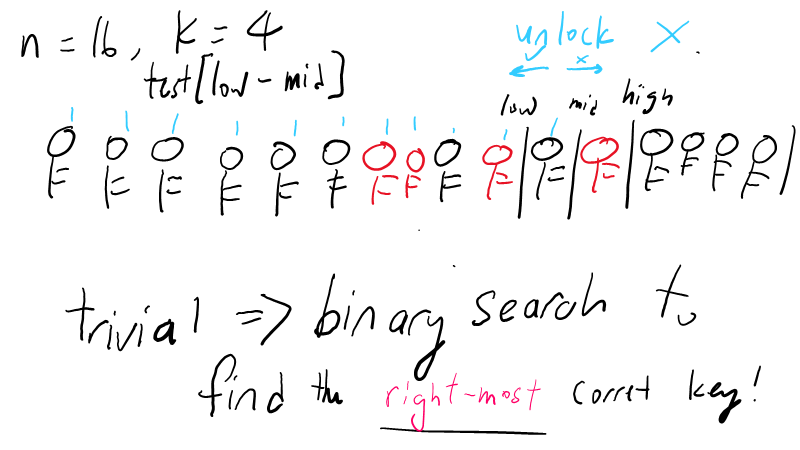 n = 16, k = 4
unlock X.
test[low - mid]
x
low mid high
trivial => binary search to
find the right-most corret key!